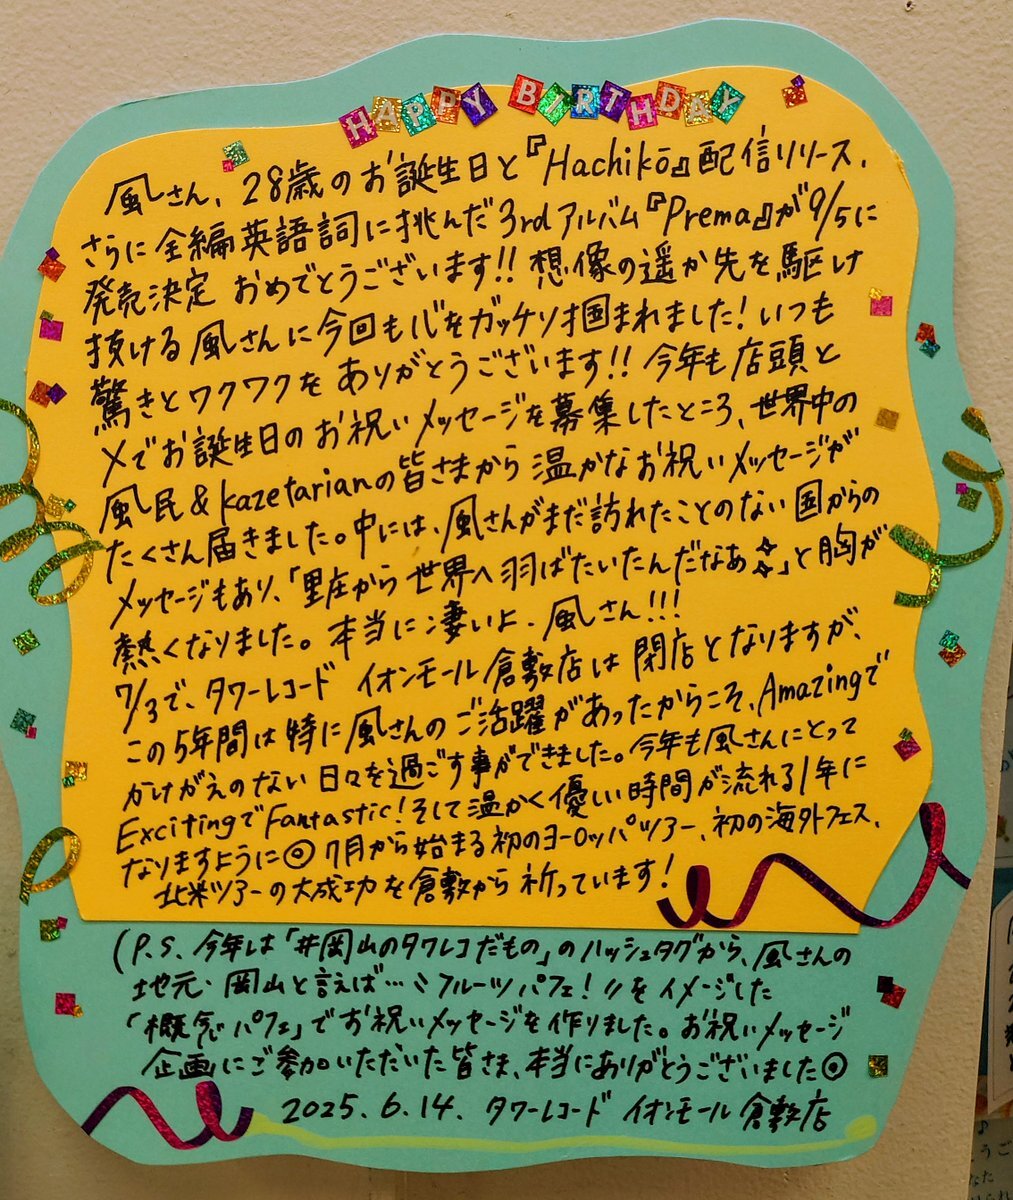 HAPPY BIRTHDAY
風さん、28歳のお誕生日と『Hachikō』配信リリース、
さらに全編英語詞に挑んだ3rdアルバム『Prema』が9/5に
発売決定 おめでとうございます!! 想像の遥か先を駆け
抜ける風さんに今回も心をガッチリ掴まれました! いつも
驚きとワクワクを ありがとうございます!! 今年も店頭と
Xでお誕生日のお祝いメッセージを募集したところ、世界中の
風民&kazetarianの皆さまから 温かなお祝いメッセージが
たくさん届きました。中には、風さんがまだ訪れたことのない国からの
メッセージもあり、「里庄から世界へ羽ばたいたんだなあ」と胸が
熱くなりました。本当に凄いよ、風さん!!!
7/3で、タワーレコード イオンモール倉敷店は閉店となりますが、
この5年間は特に風さんのご活躍があったからこそ、Amazingで
かけがえのない日々を過ごす事ができました。今年も風さんにとって
ExcitingでFantastic! そして温かく優しい時間が流れる1年に
なりますように◎ 7月から始まる初のヨーロッパツアー、初の海外フェス、
北米ツアーの大成功を倉敷から祈っています!
(P.S. 今年は「#岡山のタワレコだもの」のハッシュタグから、風さんの
地元・岡山と言えば…〝フルーツパフェ!〟をイメージした
「概念パフェ」でお祝いメッセージを作りました。お祝いメッセージ
企画にご参加いただいた皆さま、本当にありがとうございました◎
2025.6.14. タワーレコード イオンモール倉敷店